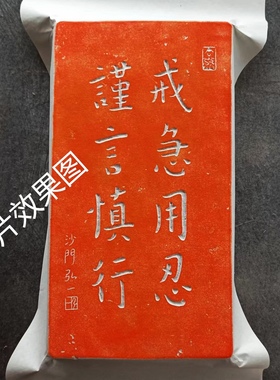 戒急用忍
謹言慎行
沙門弘一
片效果图